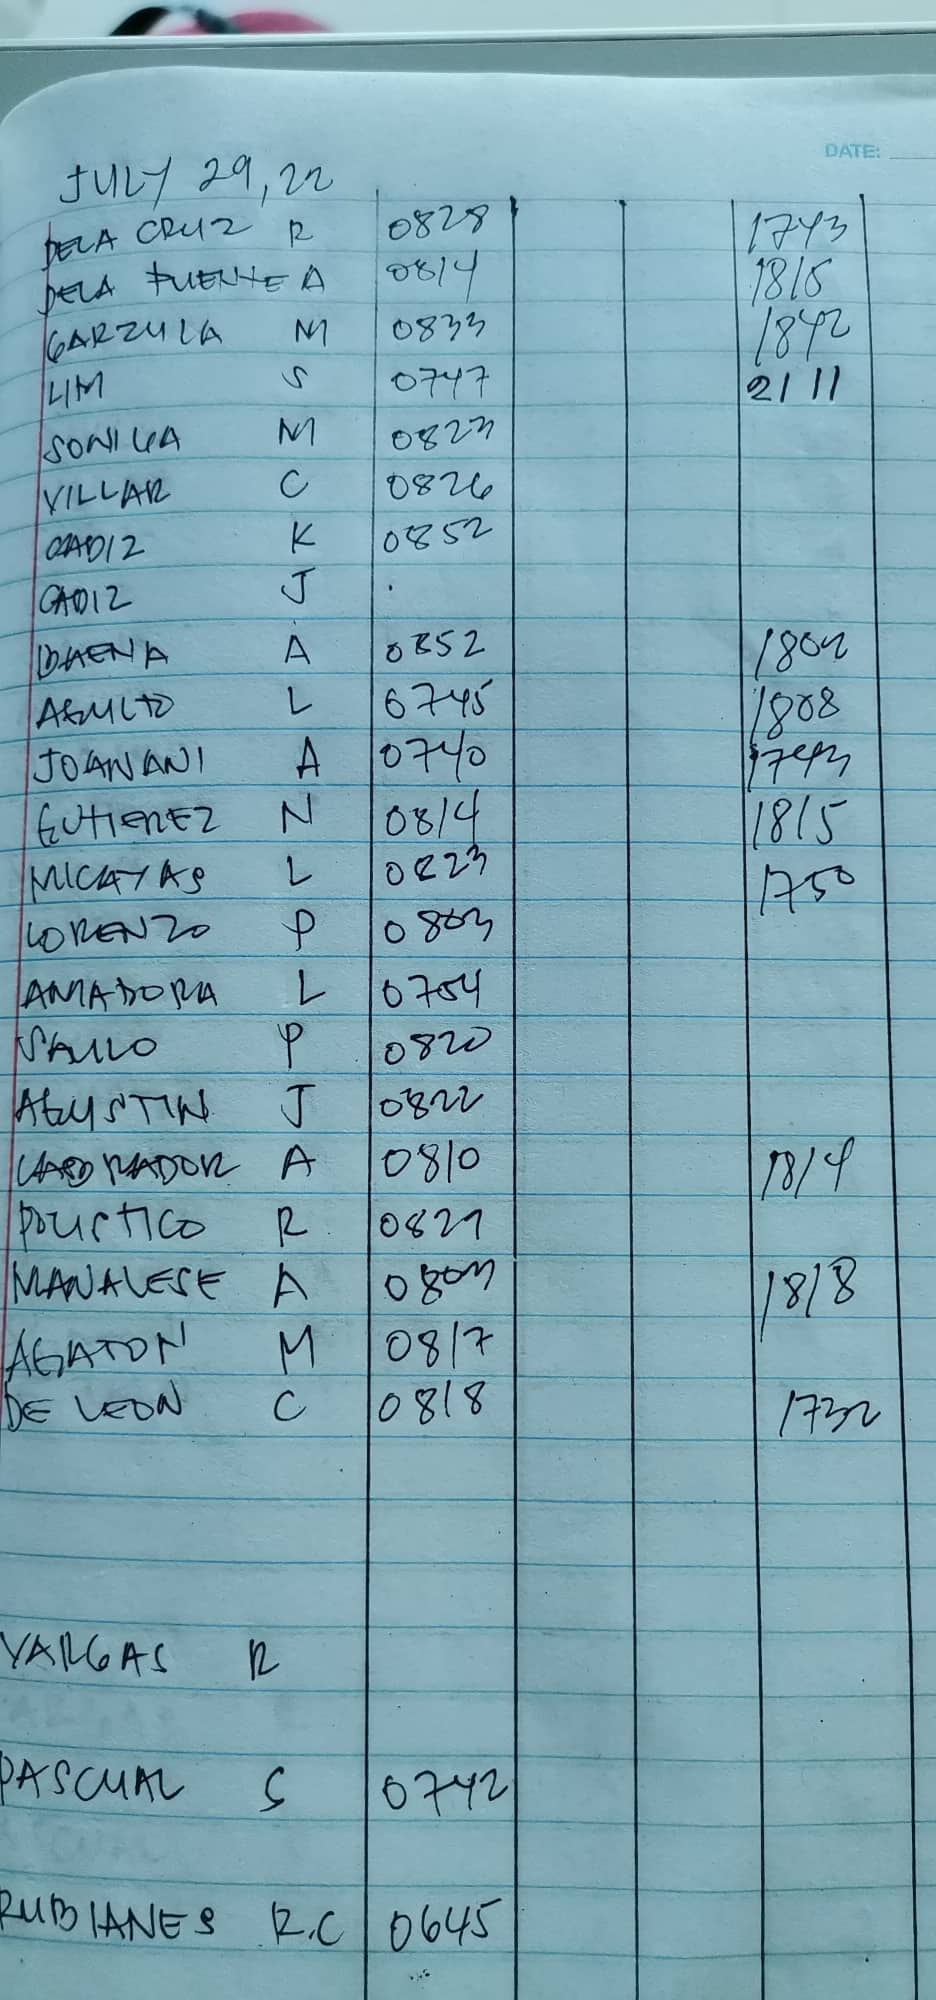 DATE:
JULY 29, 22
DELA CRUZ R 0828 1743
DELA FUENTE A 0814 1815
GARZULA M 0833 1842
LIM S 0747 2111
SONIGA M 0823
VILLAR C 0826
CADIZ K 0852
CADIZ J .
BAENA A 0852 1802
AGULTO L 0745 1808
JOANANI A 0740 1743
GUTIEREZ N 0814 1815
MICAYAS L 0823 1750
LORENZO P 0803
AMADORA L 0754
SALLO P 0820
AGUSTIN J 0822
LABORADOR A 0810 1814
POLISTICO R 0829
MANALESE A 0803 1818
AGATON M 0817
DE LEON C 0818 1732
VARGAS R
PASCUAL S 0742
RUBIANES R.C 0645